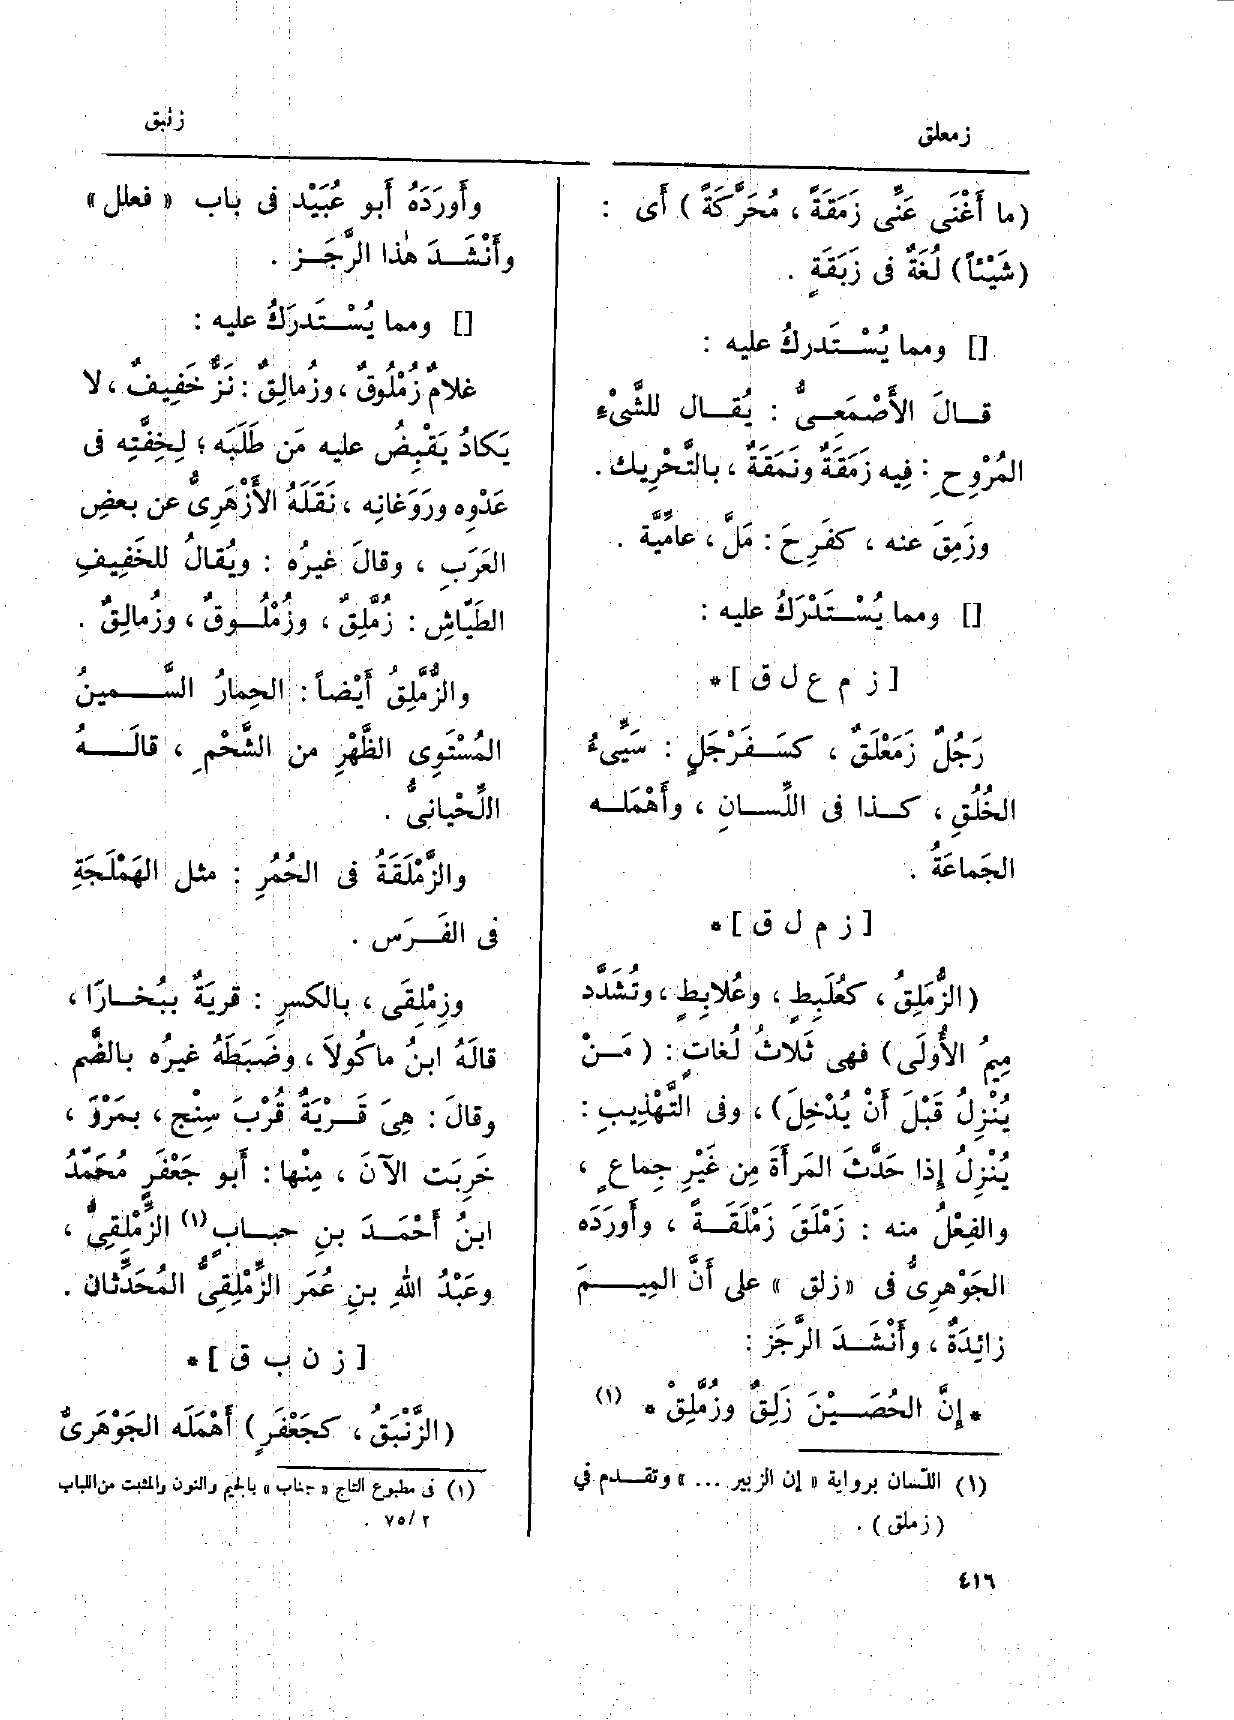 زمعلق
زنبق
(ما أَغْنَى عَنِّى زَمَقَةً ، مُحَرَّكَةً ) أَى :
(شَيْئاً) لُغَةٌ فى زَبَقَةٍ .
[] ومما يُسْـتَدركُ عليه :
قـالَ الأَصْمَعـىُّ : يُقـال للشَّىْءِ
المُرْوِحِ : فِيه زَمَقَةٌ ونَمَقَةٌ ، بالتَّحْرِيك .
وزَمِقَ عنه ، كفَرِحَ : مَلَّ ، عامِّيَّة .
[] ومما يُسْـتَدْرَكُ عليه :
[ ز م ع ل ق ] *
رَجُلٌ زَمَعْلَقٌ ، كسَـفَرْجَلٍ : سَيِّىءُ
الخُلُقِ ، كـذا فى اللِّسـانِ ، وأَهْمَلـه
الجَماعَةُ .
[ ز م ل ق ] *
(الزُّمَلِقُ ، كعُلَبِطٍ ، وعُلابِطٍ ، وتُشَدَّد
مِيمُ الأُولَى) فهى ثَلاثُ لُغاتٍ : ( مَـنْ
يُنْزِلُ قَبْلَ أَنْ يُدْخِلَ) ، وفى التَّهْذِيبِ :
يُنْزِلُ إِذا حَدَّثَ المَرأَةَ مِن غَيْرِ جِماعٍ ،
والفِعْلُ منه : زَمْلَقَ زَمْلَقَـةً ، وأَورَدَه
الجَوْهرِىُّ فى «زلق » على أَنَّ المِيـمَ
زائِدَةٌ ، وأَنْشَـدَ الرَّجَز :
*إِنَّ الحُصَـيْنَ زَلِقٌ وزُمَّلِقْ * (١)
(١) اللسان برواية « إن الزبير ... » وتقـدم في
( زملق ) .
٤١٦
وأَورَدَهُ أَبو عُبَيْد فى باب « فعلل »
وأَنْشَـدَ هٰذا الرَّجَـز .
[] ومما يُسْـتَدرَكُ عليه :
غلامٌ زُمْلُوقٌ ، وزُمالِقٌ : نَزٌّ خَفِيفٌ ، لا
يَكادُ يَقْبِضُ عليه مَن طَلَبَه ؛ لِخِفَّتِه فى
عَدْوِه ورَوَغانِه ، نَقَلَهُ الأَزْهَرِىُّ عن بعضِ
العَرَبِ ، وقالَ غيرُه : ويُقالُ للخَفِيفِ
الطَيّاشِ : زُمَّلِقٌ ، وزُمْلُـوقٌ ، وزُمالِقٌ .
والزُّمَّلِقُ أَيْضاً : الحِمارُ السَّـمِينُ
المُسْتَوِى الظَّهْرِ من الشَّحْمِ ، قالَـهُ
اللِّحْيانىُّ .
والزَّمْلَقَةُ فى الحُمُرِ : مثل الهَمْلَجَةِ
فى الفَـرَس .
وزِمْلِقَى ، بالكسرِ : قريَةٌ ببُخـارَا ،
قالَهُ ابنُ ماكُولاَ ، وضَبَطَهُ غيرُه بالضَّم
وقالَ : هِىَ قَـرْيَةٌ قُرْبَ سِنْج ، بمَرْوَ ،
خَرِبَت الآنَ ، مِنْها : أَبو جَعْفَرٍ مُحَمَّدُ
ابنُ أَحْمَـدَ بنِ حبـابٍ (١) الزِّمْلِقِىُّ ،
وعَبْدُ اللهِ بنِ عُمَرَ الزِّمْلِقِىُّ المُحَدِّثان .
[ ز ن ب ق ] *
(الزَّنْبَقُ ، كجَعْفَرٍ ) أَهْمَلَه الجَوْهَرِىُّ
(١) فى مطبوع التاج « جناب » بالجيم والنون والمثبت من اللباب
٧٥/٢ .